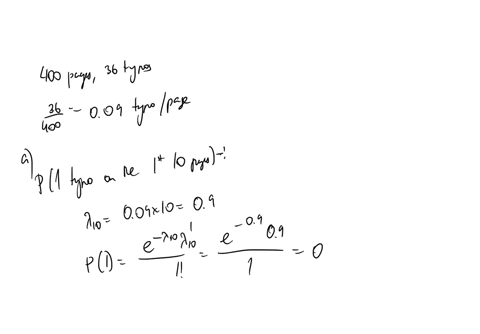 400 pages, 36 typos
36/400 = 0.09 typo/page
a) P(1 typo on the 1st 10 pages) = !
λ10 = 0.09x10 = 0.9
P(1) = e^-λ10 λ10^1 / 1! = e^-0.9 0.9 / 1 = 0